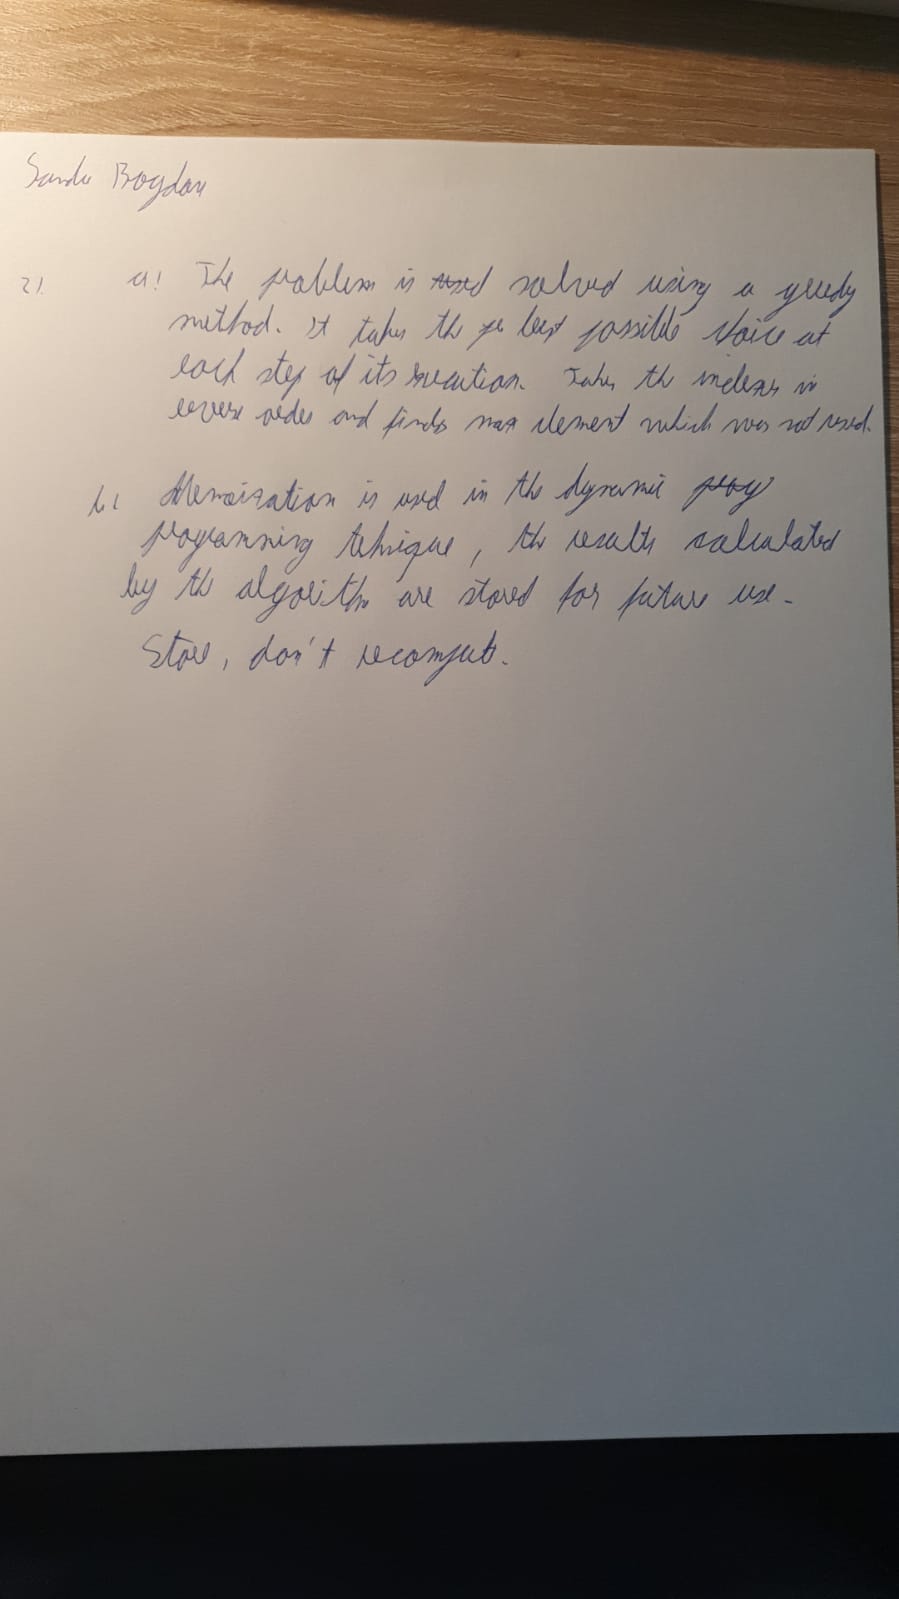 Sandu Bogdan
2). a) The problem is used solved using a greedy
method. It takes the pe best possible choice at
each step of its execution. Takes the indexes in
reverse order and finds max element which was not used.
b) Memoization is used in the dynamic prog
programming tehnique, the results calculated
by the algorithm are stored for future use.
Store, don't recompute.